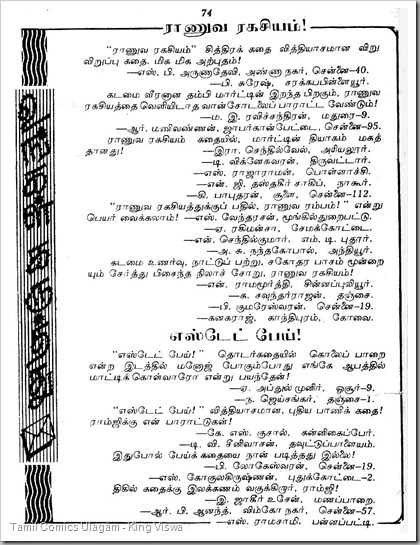 74
ராணுவ ரகசியம்!
"ராணுவ ரகசியம்" சித்திரக் கதை வித்தியாசமான விறு
விறுப்பு கதை. மிக மிக அற்புதம்!
—எஸ். பி. அருணாதேவி, அண்ணா நகர், சென்னை-40.
—பி. சுரேஷ், சரக்கப்பிள்ளையூர்.
கடமை வீரனை தம்பி மார்ட்டின் இறந்த பிறகும், ராணுவ
ரகசியத்தை வெளியிடாத வான்சோடலைப் பாராட்ட வேண்டும்!
—ம. இ. ரவிச்சந்திரன், மதுரை-9.
—ஆர். மணிவண்ணன், ஜாபர்கான்பேட்டை, சென்னை-95.
ராணுவ ரகசியம் கதையில், மார்ட்டின் தியாகம் மகத்
தானது!
—இரா. செந்தில்வேல், அரியலூர்.
—டி. விக்னேசுவரன், திருவட்டார்.
—எஸ். ராஜாராமன், பொள்ளாச்சி.
—என். ஜி. தஸ்தகீர் சாகிப், நாகூர்.
—கி. பாபுதரன், சூளை, சென்னை-112.
"ராணுவ ரகசியத்துக்குப் பதில், ராணுவ ரம்பம்!" என்று
பெயர் வைக்கலாம்! —எஸ். வேந்தரசன், மூங்கில்துறைபட்டு.
—ஏ. ரகிமன்சா, சேமக்கோட்டை.
—என். செந்தில்குமார். எம். டி. புதூர்.
—அ. சு. நந்தகோபால், அந்தியூர்.
கடமை உணர்வு, நாட்டுப் பற்று, சகோதர பாசம் மூன்றை
யும் சேர்த்து பிசைந்த நிலாச் சோறு, ராணுவ ரகசியம்!
—என். ராமமூர்த்தி, சின்னப்புலியூர்.
—க. சவுந்தர்ராஜன், தஞ்சை.
—பி. குமரேஸ்வரன், சென்னை-19.
—கனகராஜ், காந்திபுரம், கோவை.
எஸ்டேட் பேய்!
"எஸ்டேட் பேய்!" தொடர்கதையில் கொலைப் பாறை
என்ற இடத்தில் மனோஜ் போகும்போது எங்கே ஆபத்தில்
மாட்டிக் கொள்வாரோ என்று பயந்தேன்!
—ஏ. அப்துல் முனிர், ஒசூர்-9.
—ந. ஜெய்சங்கர், தஞ்சை-1.
"எஸ்டேட் பேய்!" வித்தியாசமான, புதிய பாணிக் கதை!
ராம்ஜிக்கு என் பாராட்டுகள்!
—கே. எஸ். குசால், கன்னிகைப்பேர்.
—டி. வி. சீனிவாசன். தவுட்டுப்பாளையம்.
இதுபோல் பேய்க் கதையை நான் படித்தது இல்லை!
—பி. லோகேஸ்வரன், சென்னை-19.
—எஸ். கோகுலகிருஷ்ணன், புதுக்கோட்டை-2.
திகில் கதைக்கு இலக்கணம் வகுக்கிறார், ராம்ஜி!
—இ. ஜாகீர் உசேன், மணப்பாறை.
—ஆர். பி. ஆனந்த், விம்கோ நகர், சென்னை-57.
—எஸ். ராமசாமி, பன்னப்பட்டி.
Tamil Comics Ulagam - King Viswa